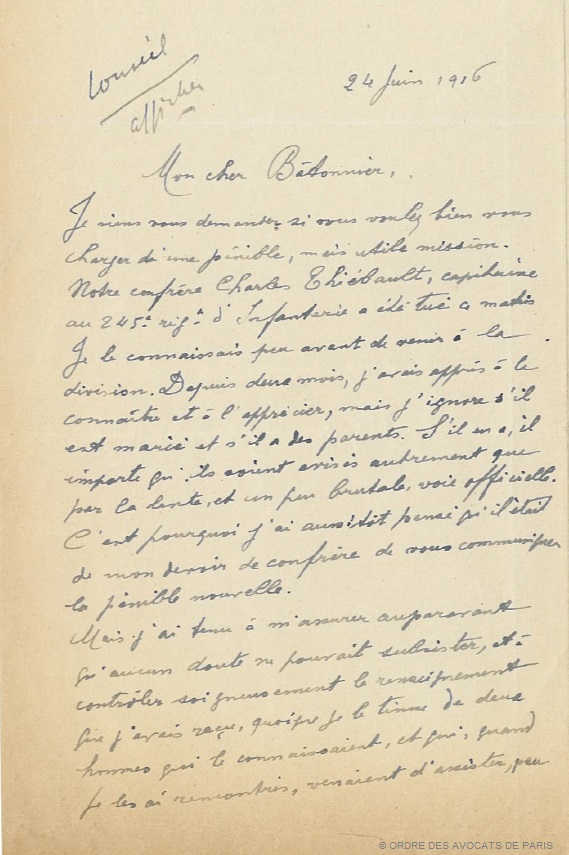 Conseil
afficher
24 Juin 1916
Mon cher Bâtonnier,
Je viens vous demander si vous voulez bien vous
charger d'une pénible, mais utile mission.
Notre confrère Charles Thiébault, capitaine
au 245e régt d'Infanterie a été tué ce matin
Je le connaissais peu avant de venir à la
division. Depuis deux mois, j'avais appris à le
connaître et à l'apprécier, mais j'ignore s'il
est marié et s'il a des parents. S'il en a, il
importe qu'ils soient avisés autrement que
par la lente, et un peu brutale, voie officielle.
C'est pourquoi j'ai aussitôt pensé qu'il était
de mon devoir de confrère de vous communiquer
la pénible nouvelle.
Mais j'ai tenu à m'assurer auparavant
qu'aucun doute ne pouvait subsister, et à
contrôler soigneusement le renseignement
que j'avais reçu, quoique je le tinsse de deux
hommes qui le connaissaient, et qui, quand
je les ai rencontrés, venaient d'assister, peu
© ORDRE DES AVOCATS DE PARIS